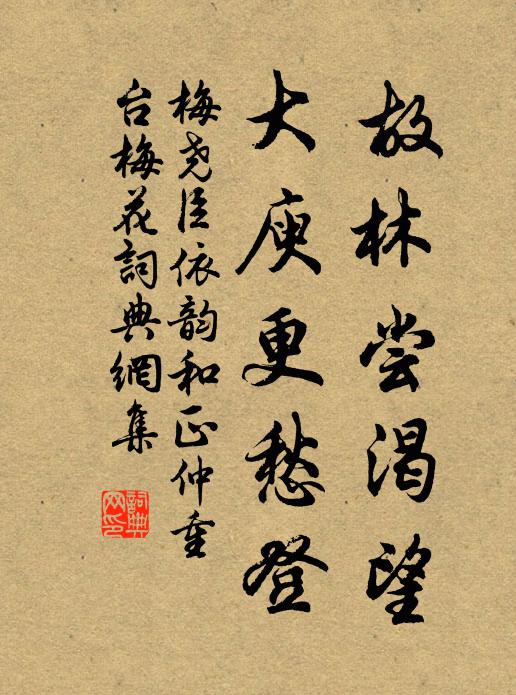 故林尝渴望
大庾更愁登
梅尧臣依韵和正仲重
台梅花詞典網集
詞典网印